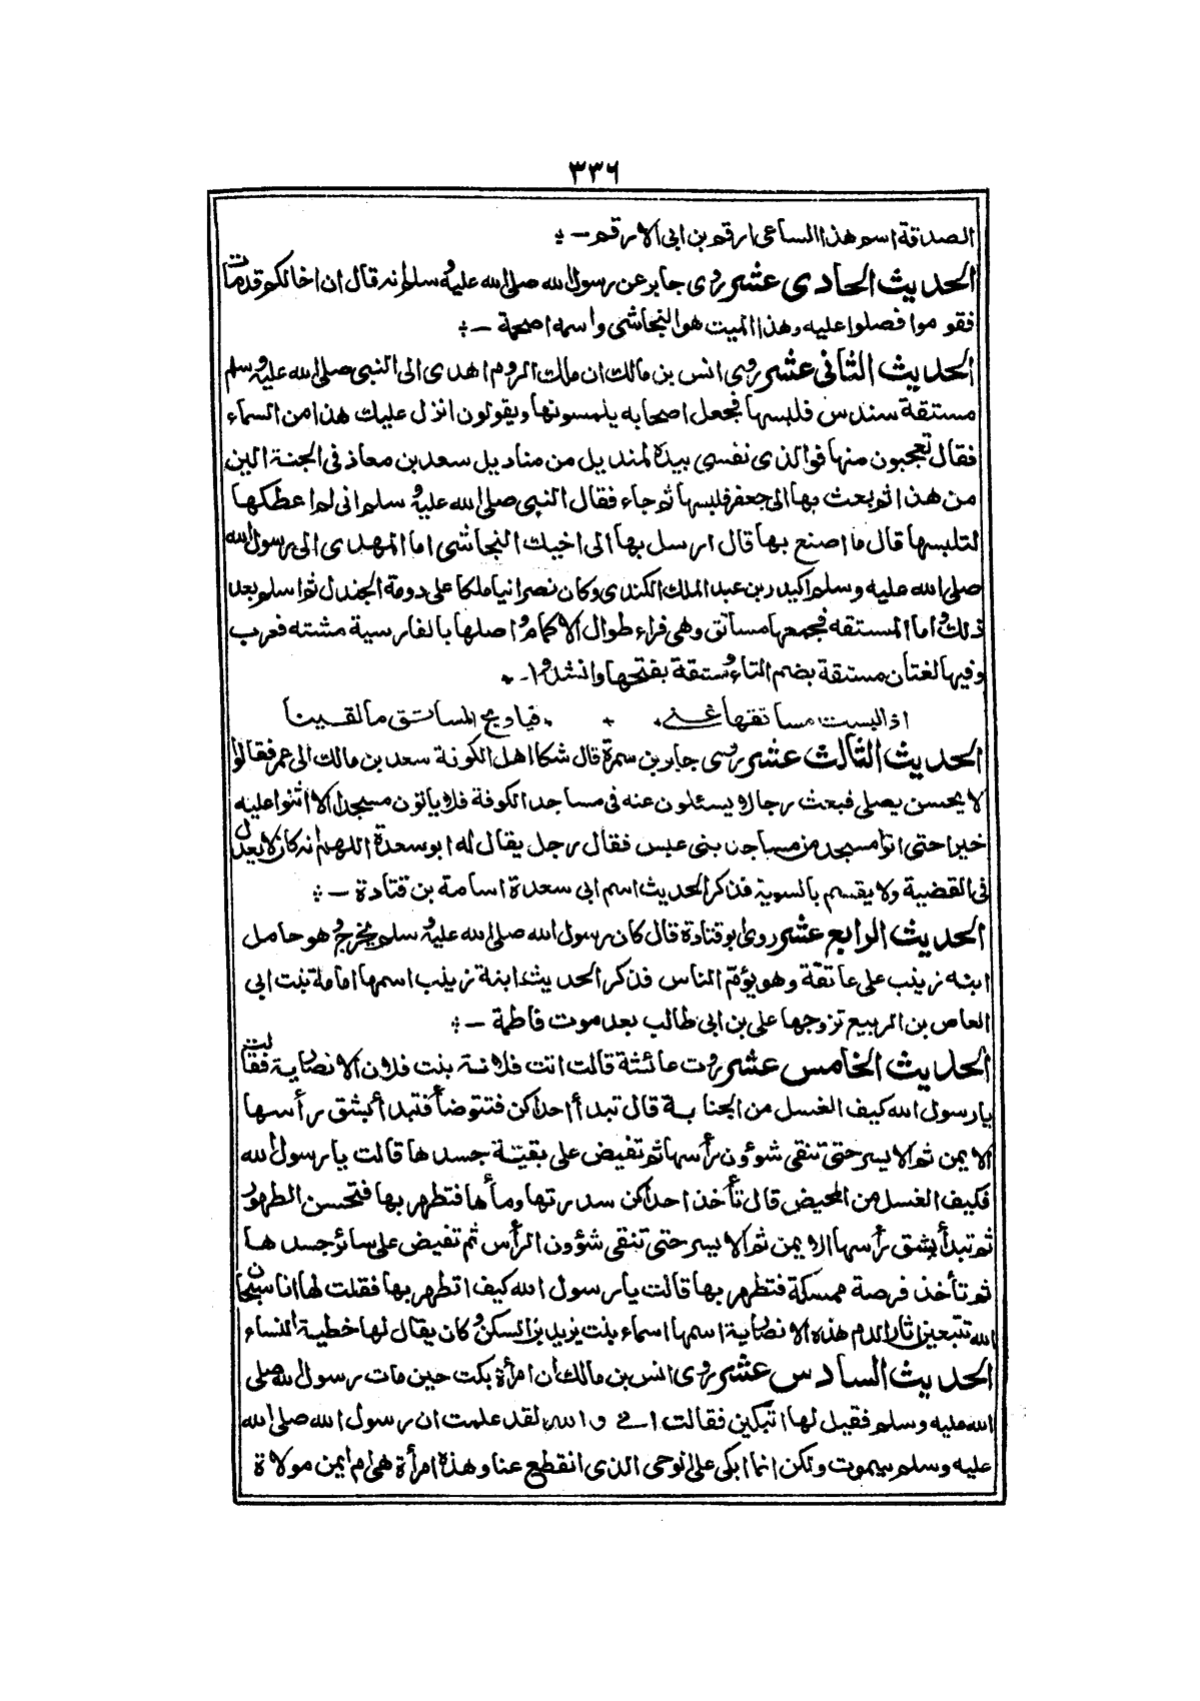 ٣٣٦
الصدقة اسم هذا الساعى ارقم بن ابى الارقم -
الحديث الحادى عشر روى جابر عن رسول الله صلى الله عليه وسلم انه قال ان اخا لكم قد مات
فقوموا فصلوا عليه وهذا الميت هو النجاشى واسمه اصحمة -
الحديث الثانى عشر روى انس بن مالك ان مالك الروم اهدى الى النبى صلى الله عليه وسلم
مستقة سندس فلبسها فجعل اصحابه يلمسونها ويقولون انزل عليك هذا من السماء
فقال تعجبون منها فوالذى نفسى بيده لمنديل من مناديل سعد بن معاذ فى الجنة الين
من هذا ثم بعث بها الى جعفر فلبسها ثم جاء فقال النبى صلى الله عليه وسلم انى لم اعطكها
لتلبسها قال ما اصنع بها قال ارسل بها الى اخيك النجاشى اما المهدى الى رسول الله
صلى الله عليه وسلم اكيدر بن عبد الملك الكندى وكان نصرانيا ملكا على دومة الجندل ثم اسلم بعد
ذلك واما المستقه فجمعها مساتق وهى فراء طوال الاكمام واصلها بالفارسية مشته فعرب
وفيها لغتان مستقة بضم التاء ومستقة بفتحها وانشدوا -
اذا لبست مساتقها غنى فياويح المساتق ما لقينا
الحديث الثالث عشر روى جابر بن سمرة قال شكا اهل الكوفة سعد بن مالك الى عمر فقالوا
لا يحسن يصلى فبعث رجالا يسئلون عنه فى مساجد الكوفة فلا ياتون مسجدا الا اثنوا عليه
خيرا حتى اتوا مسجد من مساجد بنى عبس فقال رجل يقال له ابو سعدة اللهم انه كان لا يعدل
فى القضية ولا يقسم بالسوية فذكر الحديث اسم ابى سعدة اسامة بن قتادة -
الحديث الرابع عشر روى ابو قتادة قال كان رسول الله صلى الله عليه وسلم يخرج وهو حامل
ابنه زينب على عاتقة وهو يؤم الناس فذكر الحديث ابنة زينب اسمها امامة بنت ابى
العاص بن الربيع تزوجها على بن ابى طالب بعد موت فاطمة -
الحديث الخامس عشر روت عائشة قالت اتت فلانة بنت فلان الانصارية فقالت
يا رسول الله كيف الغسل من الجنابة قال تبدأ احداكن فتتوضأ فتبدأ بشق رأسها
الايمن ثم الايسر حتى تنقى شوءون رأسها ثم تفيض على بقيتة جسدها قالت يا رسول الله
فكيف الغسل من المحيض قال تأخذ احداكن سدرتها ومأها فتطهر بها فتحسن الطهور
ثم تبدأ بشق رأسها الايمن ثم الايسر حتى تنقى شؤون الرأس ثم تفيض على سائر جسدها
ثم تأخذ فرصة ممسكة فتطهر بها قالت يا رسول الله كيف اتطهر بها فقلت لها انا سبحان
الله تتبعين اثار الدم هذه الانصارية اسمها اسماء بنت يزيد بن السكن وكان يقال لها خطيبة النساء
الحديث السادس عشر روى انس بن مالك ان امرأة بكت حين مات رسول الله صلى
الله عليه وسلم فقيل لها اتبكين فقالت اى والله لقد علمت ان رسول الله صلى الله
عليه وسلم سيموت ولكن انما ابكى على الوحى الذى انقطع عنا وهذه امرأة هى ام ايمن مولاة